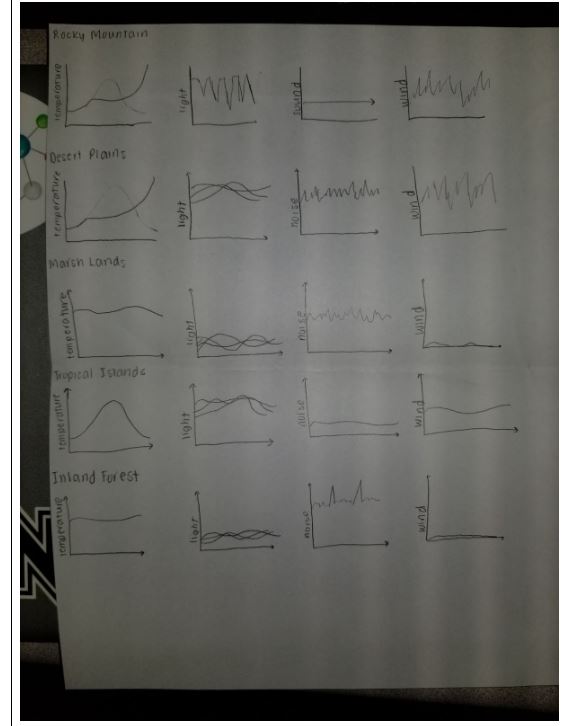 Rocky Mountain
temperature
light
sound
wind
Desert Plains
temperature
light
noise
wind
Marsh Lands
temperature
light
noise
wind
Tropical Islands
temperature
light
noise
wind
Inland Forest
temperature
light
noise
wind